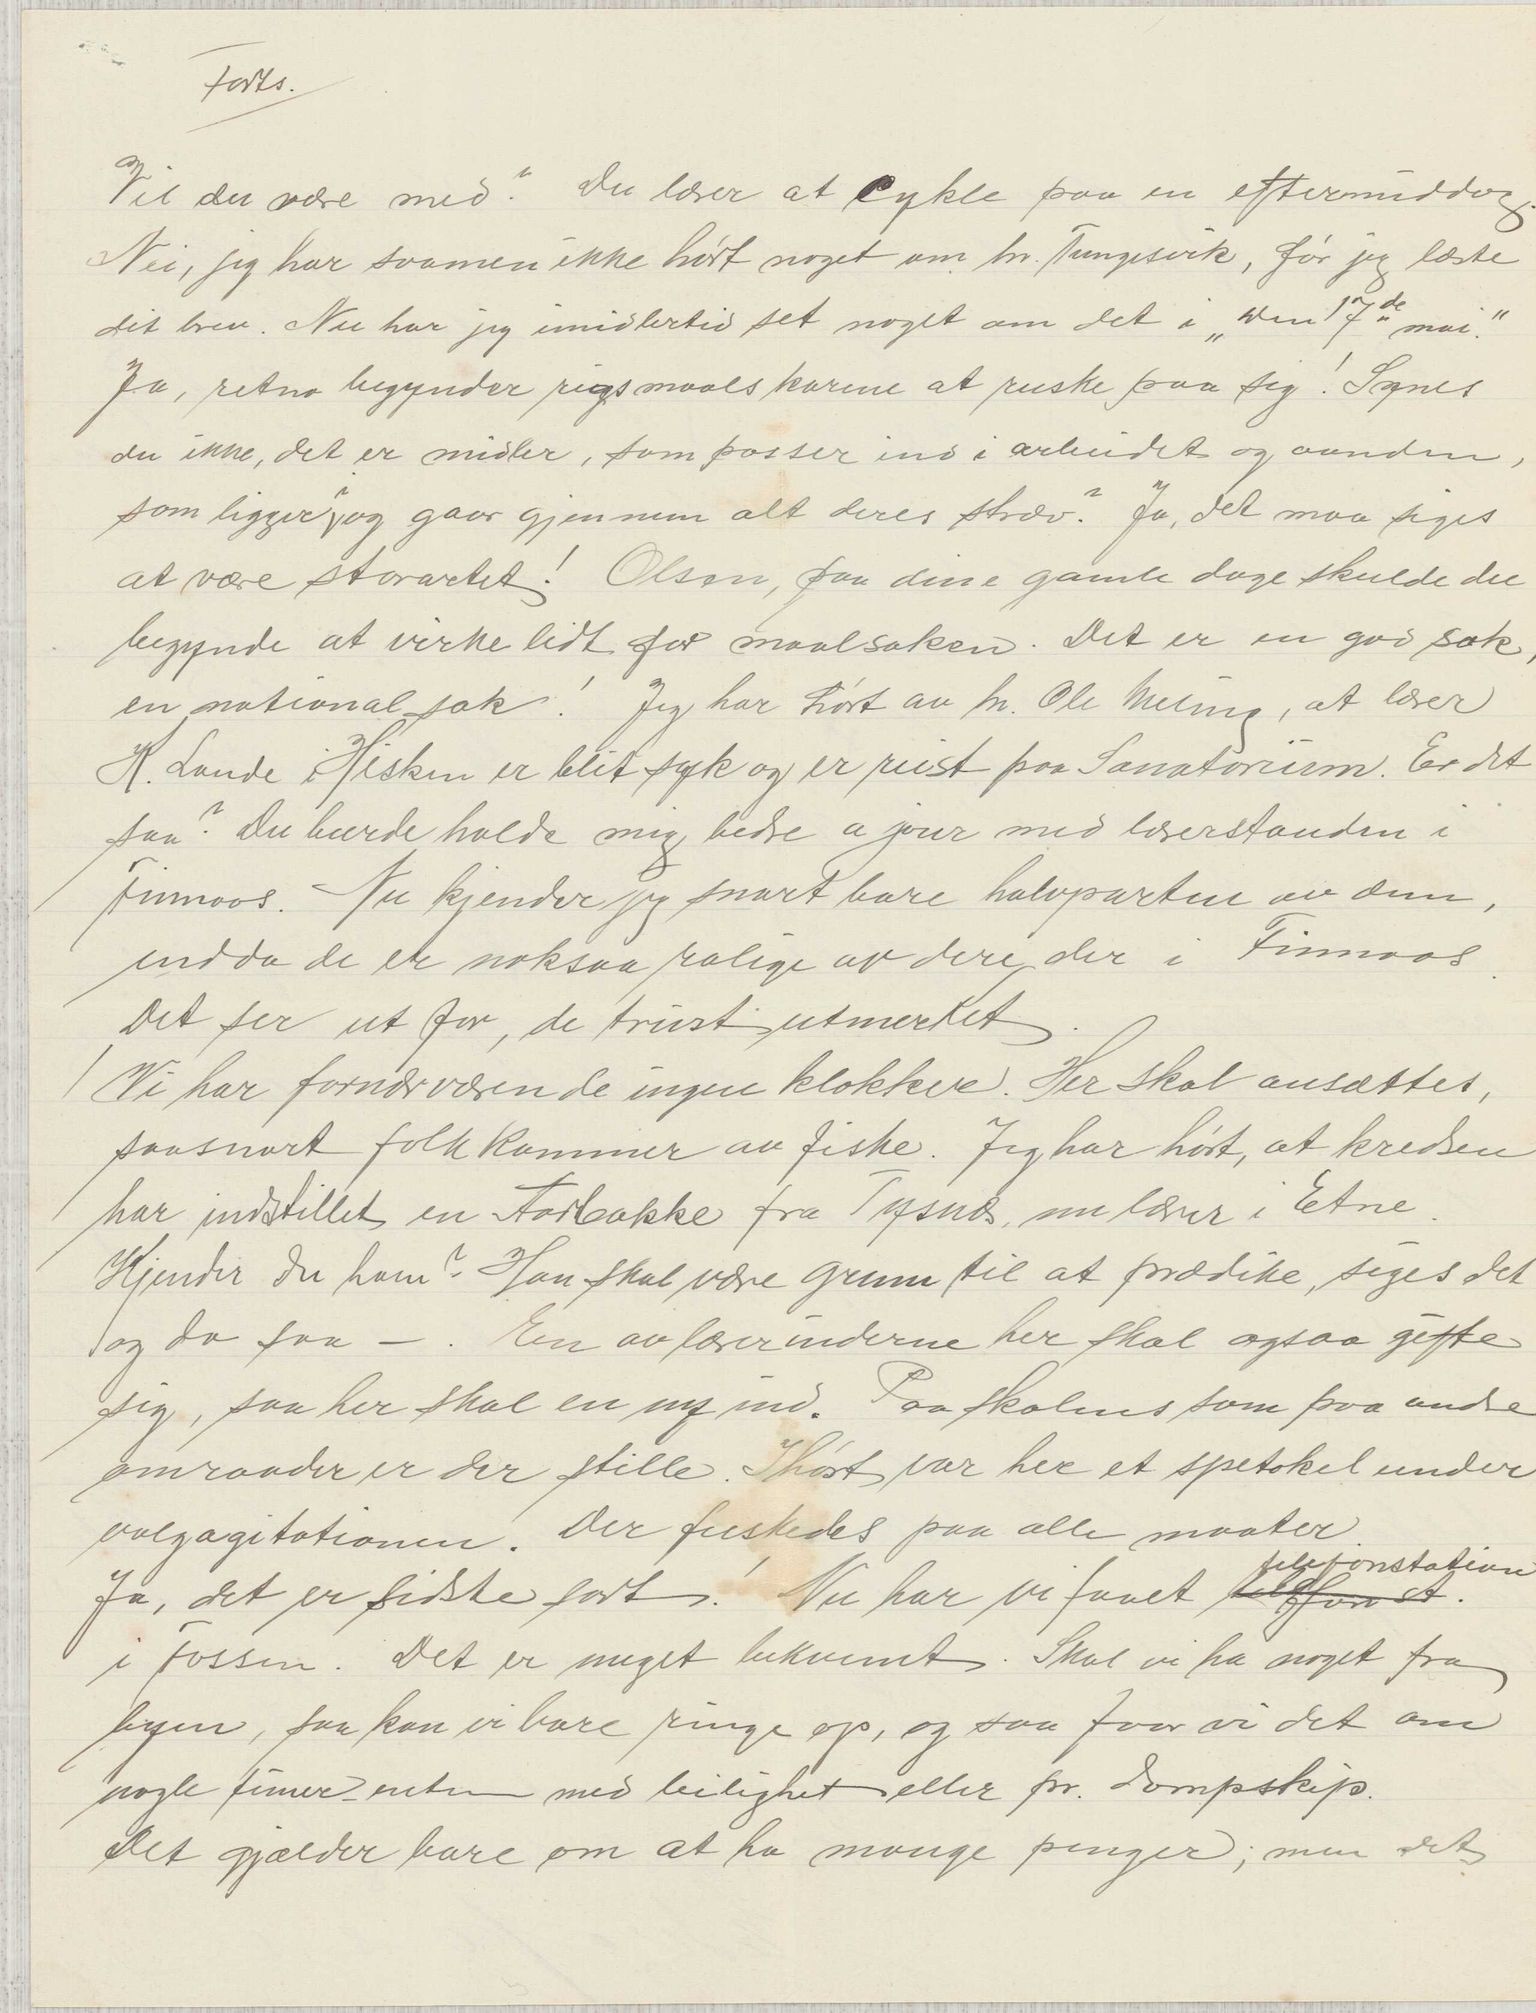 Forts.
Vil du være med? Du lærer at cykle paa en eftermiddag.
Nei, jeg har saamen ikke hørt noget om hr. Tungesvik, før jeg læste
dit brev. Nu har jeg imidlertid set noget om det i „Den 17de mai."
Ja, retno begynder rigsmaalskarene at ruske paa sig! Synes
du ikke, det er midler, som passer ind i arbeidet og aanden,
som ligger i, og gaar gjennem alt deres stræv? Ja, det maa siges
at være storartet! Olsen, paa dine gamle dage skulde du
begynde at virke lidt for maalsaken. Det er en god sak,
en national sak! Jeg har hørt av hr. Ole Meling, at lærer
K. Lande i Hisken er blit syk og er reist paa Sanatorium. Er det
saa? Du burde holde mig bedre a jour med lærerstanden i
Finnaas. Nu kjender jeg snart bare halvparten av dem,
endda de er noksaa rolige av dere der i Finnaas.
Det ser ut for, de trives utmerket.
Vi har fornærværende ingen klokker. Her skal ansættes,
saasnart folk kommer av fiske. Jeg har hørt, at kredsen
har indstillet en Storbakke fra Tysnæs, nu lærer i Etne.
Kjender du ham? Han skal være grum til at prædike, siges det
og da saa – . En av lærerinderne her skal ogsaa gifte
sig, saa her skal en ny ind. Paa skolens som paa andre
omraader er der stille. Ihøst var her et spetakel under
valgagitationen. Der fuskedes paa alle maater.
Ja, det er sidste sort! Nu har vi faaet telefonstation
i Fossen. Det er meget bekvemt. Skal vi ha noget fra
byen, saa kan vi bare ringe op, og saa faar vi det om
nogle timer enten med leilighet eller pr. dampskip.
Det gjælder bare om at ha mange penger; men det